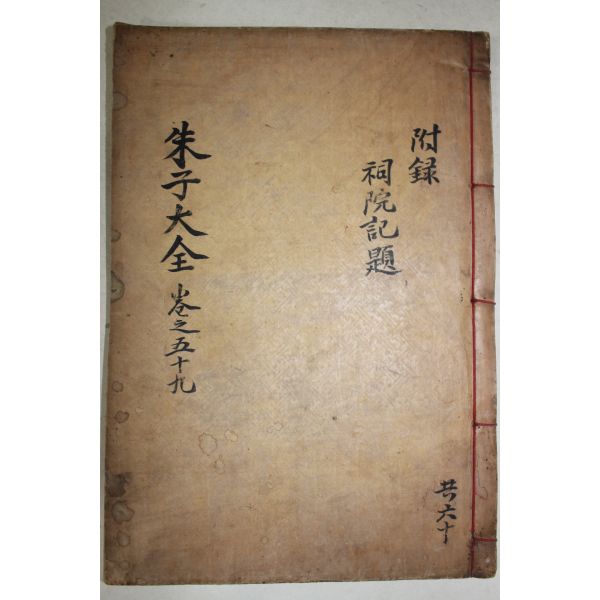 附録
祠院記題
朱子大全 卷之五十九
共六十